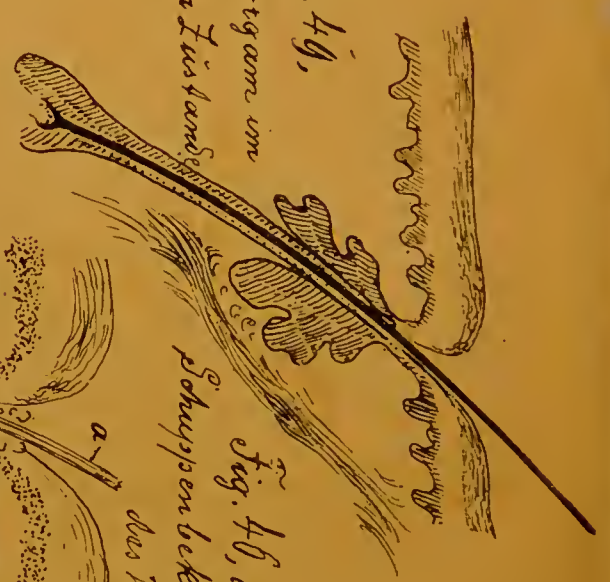 49,
rgan im
Zustande
Fig. 46,
Schuppenbek
des
a